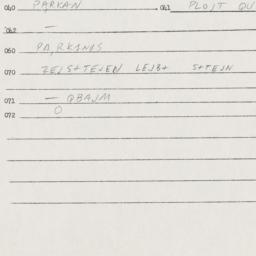 040 PARKAN 041 PLOJT QU
062 —
050 PA,RKANS
070 ZEJS+TEJEN LEJB+ S+TEJN
071 — QBAJM
072 O